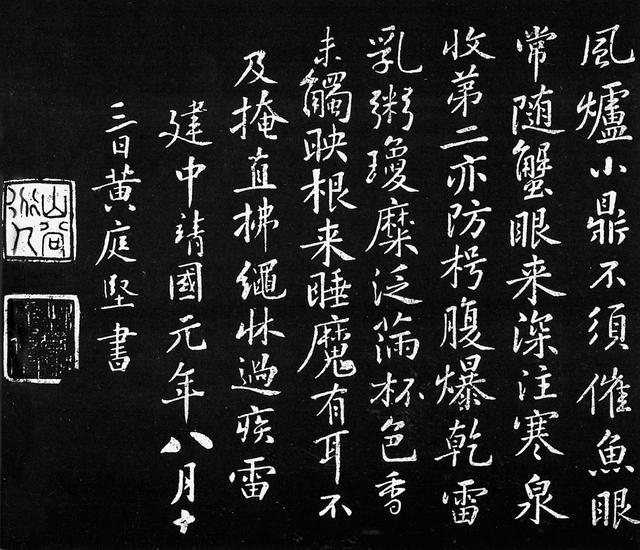 風爐小鼎不須催魚眼
常随蟹眼来深注寒泉
收第二亦防枵腹爆乾雷
乳粥瓊糜泛滿杯色香
未觸映根来睡魔有耳不
及掩直拂繩牀過疾雷
建中靖國元年八月十
三日黄庭堅書
山谷道人